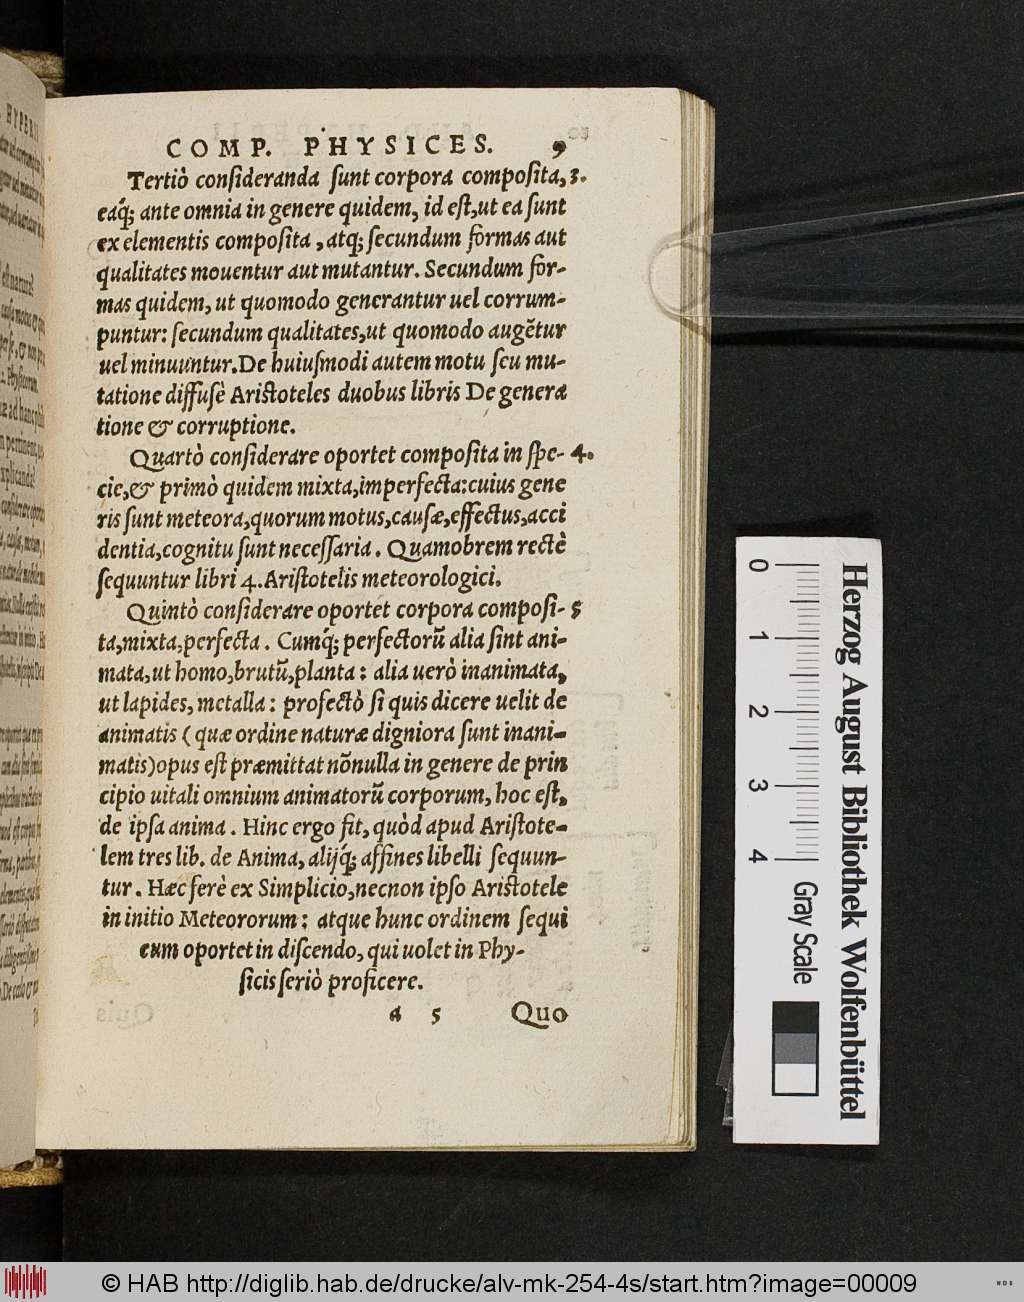 COMP. PHYSICES. 9
Tertiò consideranda sunt corpora composita, 3.
eaq́; ante omnia in genere quidem, id est, ut ea sunt
ex elementis composita, atq; secundum formas aut
qualitates mouentur aut mutantur. Secundum for-
mas quidem, ut quomodo generantur uel corrum-
puntur: secundum qualitates, ut quomodo augẽtur
uel minuuntur. De huiusmodi autem motu seu mu-
tatione diffusè Aristoteles duobus libris De genera
tione & corruptione.
Quartò considerare oportet composita in spe- 4.
cie, & primò quidem mixta, imperfecta: cuius gene
ris sunt meteora, quorum motus, causæ, effectus, acci
dentia, cognitu sunt necessaria. Quamobrem rectè
sequuntur libri 4. Aristotelis meteorologici.
Quintò considerare oportet corpora composi- 5
ta, mixta, perfecta. Cumq́; perfectorũ alia sint ani-
mata, ut homo, brutũ, planta: alia uerò inanimata,
ut lapides, metalla: profectò si quis dicere uelit de
animatis (quæ ordine naturæ digniora sunt inani-
matis) opus est præmittat nõnulla in genere de prin
cipio uitali omnium animatorũ corporum, hoc est,
de ipsa anima. Hinc ergo fit, quòd apud Aristote-
lem tres lib. de Anima, alijq́; affines libelli sequun-
tur. Hæc ferè ex Simplicio, necnon ipso Aristotele
in initio Meteororum: atque hunc ordinem sequi
eum oportet in discendo, qui uolet in Phy-
sicis seriò proficere.
a 5 Quo
0 1 2 3 4
Gray Scale
Herzog August Bibliothek Wolfenbüttel
© HAB http://diglib.hab.de/drucke/alv-mk-254-4s/start.htm?image=00009
WDB